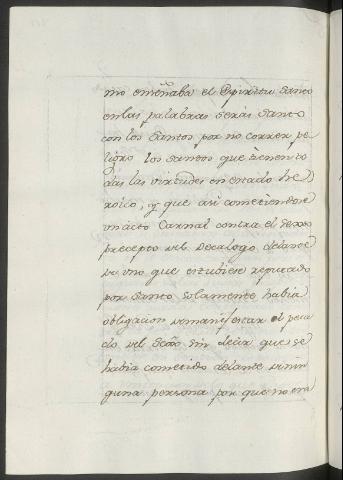 mo enseñaba el Espiritu Santo
en las palabras serás Santo
con los Santos por no correr pe-
ligro los Santos que tienen to
das las virtudes en estado he
roico, y que asi cometiendose
un acto Carnal contra el sexto
precepto del Decalogo delante
de uno que estubiese reputado
por Santo solamente habia
obligacion de manifestar el peca
do del sexto sin decir que se
habia cometido delante de nin
guna persona por que no era